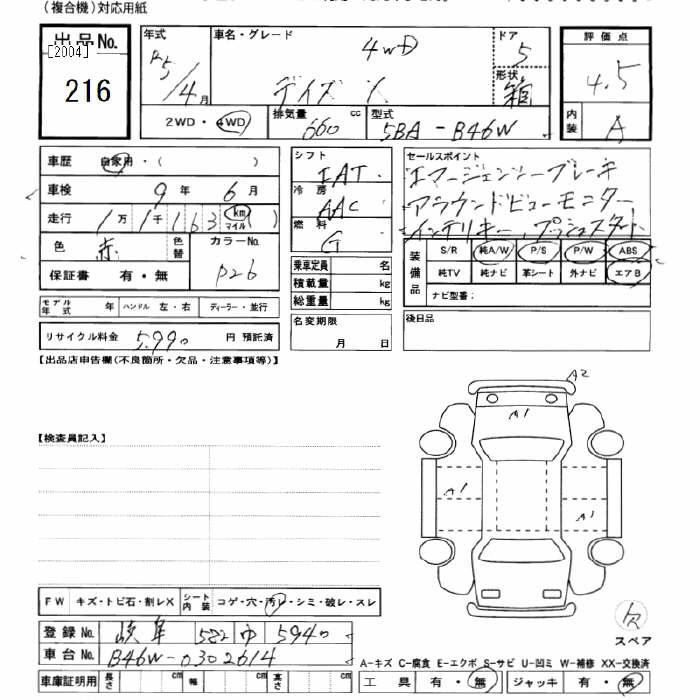 (複合機)対応用紙
出品No. [2004] 216
年式 R5/4月
車名・グレード デイズ X 4WD
ドア 5
形状 箱
評価点 4.5
内装 A
2WD・4WD
排気量 660 cc
型式 5BA-B46W
車歴 自家用・( )
車検 9年 6月
走行 1万1千163 km マイル
色 赤 色替 カラーNo. P26
保証書 有・無
モデル年式 年 ハンドル 左・右 ディーラー・並行
リサイクル料金 5,990 円 預託済
シフト IAT
冷房 AAC
燃料 G
乗車定員 名
積載量 kg
総重量 kg
名変期限 月 日
セールスポイント
エマージェンシーブレーキ
アラウンドビューモニター
インテリキー、プッシュスタート
装備品 S/R 純A/W P/S P/W ABS
純TV 純ナビ 革シート 外ナビ エアB
ナビ型番:
後日品
【出品店申告欄(不良箇所・欠品・注意事項等)】
【検査員記入】
A2
A1
A1
A1
FW キズ・トビ石・割レX シート内装 コゲ・穴・汚レ・シミ・破レ・スレ
登録No. 岐阜 582 ゆ 5940
車台No. B46W-0302614
車庫証明用 長さ cm 幅 cm 高さ cm
欠
スペア
A-キズ C-腐食 E-エクボ S-サビ U-凹ミ W-補修 XX-交換済
工具 有・無 ジャッキ 有・無